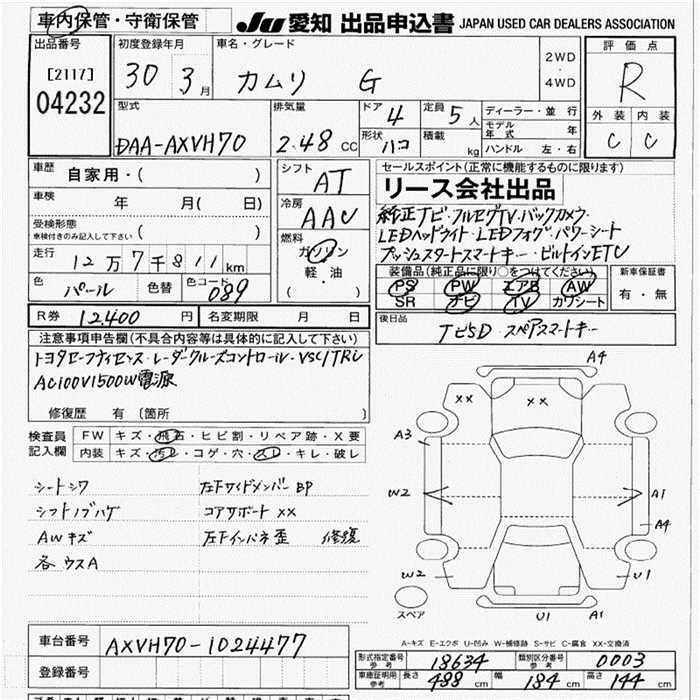 車内保管・守衛保管
JU 愛知 出品申込書 JAPAN USED CAR DEALERS ASSOCIATION
出品番号
[2117]
04232
初度登録年月
30 3月
車名・グレード
カムリ G
2WD
・
4WD
評価点
R
外装 内装
C C
型式
DAA-AXVH70
排気量
2.48 CC
ドア 4
形状 ハコ
定員 5人
積載 kg
ディーラー・並行
モデル年式 年
ハンドル 左・右
車歴 自家用・( )
車検 年 月( 日)
受検形態
車検付きのみ記入して下さい ( )
走行 12万7千811km
色 パール 色替 色コード 089
シフト AT
冷房 AAC
燃料
ガソリン
軽・油
( )
セールスポイント(正常に機能するものに限ります)
リース会社出品
純正ナビ・フルセグTV・バックカメラ・
LEDヘッドライト・LEDフォグ・パワーシート
プッシュスタートスマートキー・ビルトインETC
装備品(純正品に限り○をつけてください)
PS PW エアB AW
SR ナビ TV カワシート
新車保証書
有・無
R券 12400円 名変期限 月 日
後日品
ナビSD・スペアスマートキー
注意事項申告欄(不具合内容等は具体的に記入して下さい)
トヨタセーフティセンス・レーダークルーズコントロール・VSC/TRC
AC100V1500W電源
修復歴 有 〔箇所 〕
検査員
記入欄
FW キズ・飛石・ヒビ割・リペア跡・X要
内装 キズ・汚れ・コゲ・穴・スレ・キレ・破レ
シートシワ 左Fサイドメンバー BP
シフトノブハゲ コアサポート XX
AWキズ 左Fインパネ歪 修復
各ウスA
A4
XX
XX
A3
W2
A1
A4
W2
U1
スペア
U1
A1
A-キズ E-エクボ U-凹み W-補修跡 S-サビ C-腐食 XX-交換済
車台番号 AXVH70-1024477
登録番号
形式指定番号 参考 18634 類別区分番号 参考 0003
車庫証明用 参考 長さ 488cm 幅 184cm 高さ 144cm